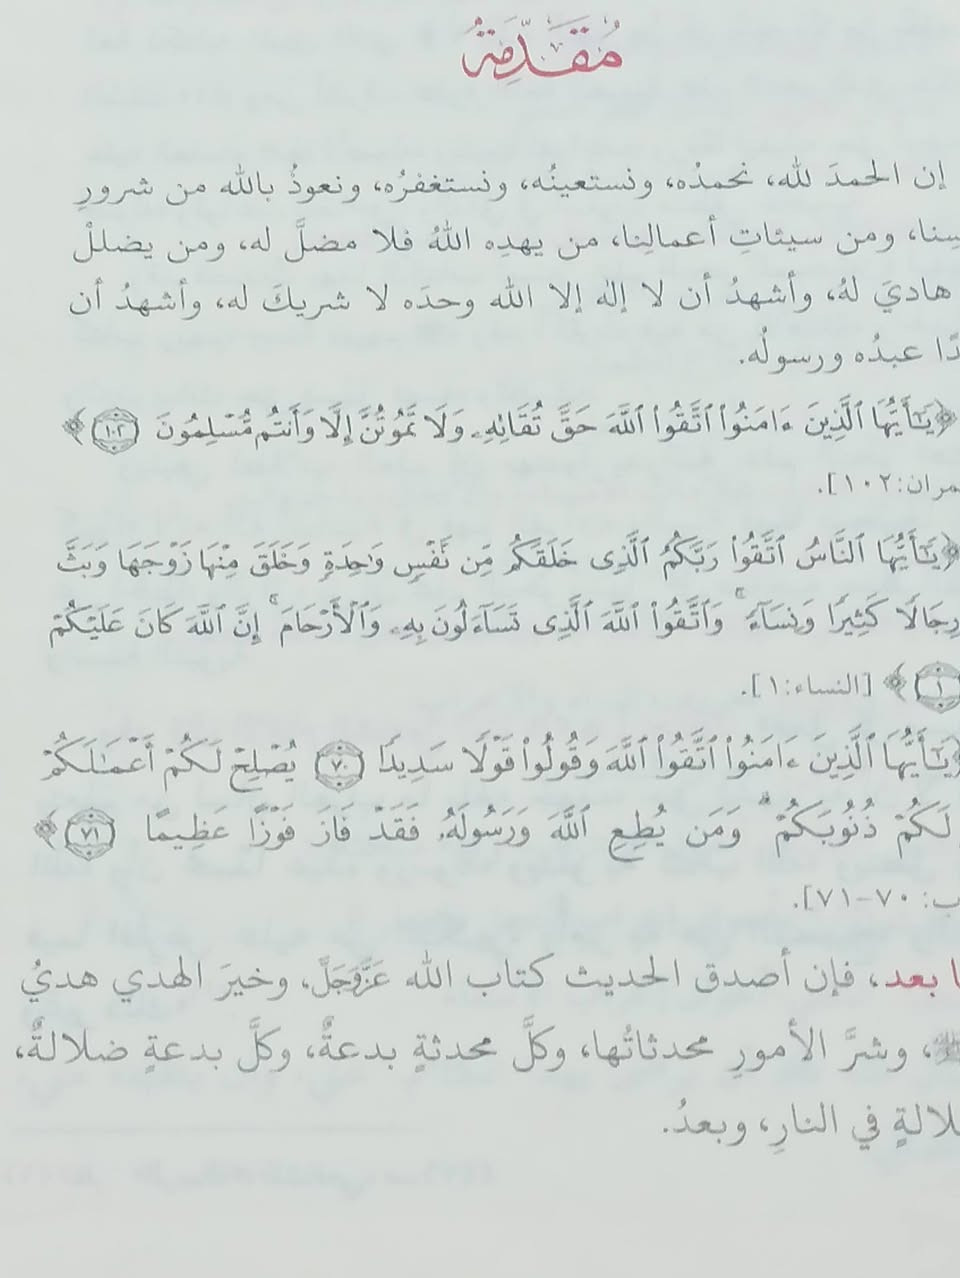 مُقَدِّمَةٌ
إن الحمدَ لله، نحمدُه، ونستعينُه، ونستغفرُه، ونعوذُ بالله من شرورِ
سِنا، ومن سيئاتِ أعمالِنا، من يهدِه اللهُ فلا مضلَّ له، ومن يضللْ
هاديَ لهُ، وأشهدُ أن لا إله إلا الله وحدَه لا شريكَ له، وأشهدُ أن
دًا عبدُه ورسولُه.
﴿يَٰٓأَيُّهَا ٱلَّذِينَ ءَامَنُوا۟ ٱتَّقُوا۟ ٱللَّهَ حَقَّ تُقَاتِهِۦ وَلَا تَمُوتُنَّ إِلَّا وَأَنتُم مُّسْلِمُونَ ١٠٢﴾
مران: ١٠٢].
﴿يَٰٓأَيُّهَا ٱلنَّاسُ ٱتَّقُوا۟ رَبَّكُمُ ٱلَّذِى خَلَقَكُم مِّن نَّفْسٍ وَٰحِدَةٍ وَخَلَقَ مِنْهَا زَوْجَهَا وَبَثَّ
رِجَالًا كَثِيرًا وَنِسَآءً ۚ وَٱتَّقُوا۟ ٱللَّهَ ٱلَّذِى تَسَآءَلُونَ بِهِۦ وَٱلْأَرْحَامَ ۚ إِنَّ ٱللَّهَ كَانَ عَلَيْكُمْ
١﴾ [النساء: ١].
يَٰٓأَيُّهَا ٱلَّذِينَ ءَامَنُوا۟ ٱتَّقُوا۟ ٱللَّهَ وَقُولُوا۟ قَوْلًا سَدِيدًا ٧٠ يُصْلِحْ لَكُمْ أَعْمَٰلَكُمْ
لَكُمْ ذُنُوبَكُمْ ۗ وَمَن يُطِعِ ٱللَّهَ وَرَسُولَهُۥ فَقَدْ فَازَ فَوْزًا عَظِيمًا ٧١﴾
ب: ٧٠-٧١].
ا بعد، فإن أصدق الحديث كتاب الله عَزَّوَجَلَّ، وخيرَ الهدي هديُ
ﷺ، وشرَّ الأمورِ محدثاتُها، وكلَّ محدثةٍ بدعةٌ، وكلَّ بدعةٍ ضلالةٌ،
لالةٍ في النارِ، وبعدُ.